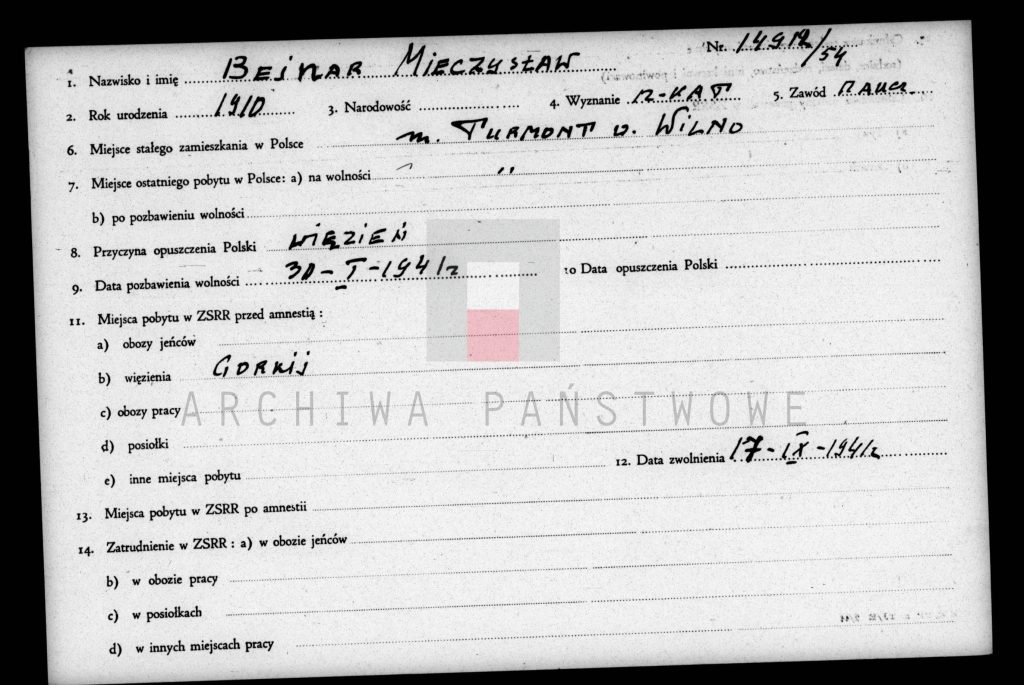 Nr. 14912/54
1. Nazwisko i imię BEJNAR MIECZYSŁAW
2. Rok urodzenia 1910 3. Narodowość 4. Wyznanie R-KAT 5. Zawód NAUCZ.
6. Miejsce stałego zamieszkania w Polsce m. TURMONT w. WILNO
7. Miejsce ostatniego pobytu w Polsce: a) na wolności "
b) po pozbawieniu wolności
8. Przyczyna opuszczenia Polski WIĘZIEŃ
9. Data pozbawienia wolności 30-I-1941r 10 Data opuszczenia Polski
11. Miejsca pobytu w ZSRR przed amnestią :
a) obozy jeńców
b) więzienia GORKIJ
c) obozy pracy
ARCHIWA PAŃSTWOWE
d) posiołki
e) inne miejsca pobytu 12. Data zwolnienia 17-IX-1941r
13. Miejsca pobytu w ZSRR po amnestii
14. Zatrudnienie w ZSRR : a) w obozie jeńców
b) w obozie pracy
c) w posiołkach
d) w innych miejscach pracy